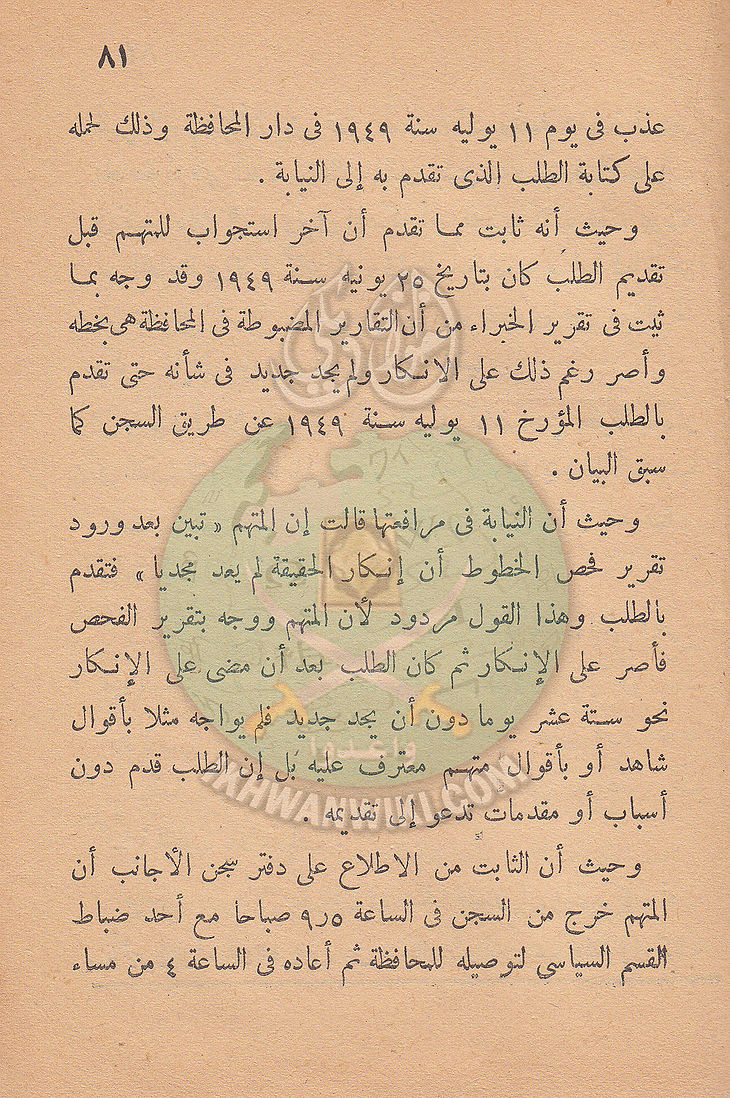 ٨١
عذب فى يوم ١١ يوليه سنة ١٩٤٩ فى دار المحافظة وذلك لحمله
على كتابة الطلب الذى تقدم به إلى النيابة .
وحيث أنه ثابت مما تقدم أن آخر استجواب للمتهم قبل
تقديم الطلب كان بتاريخ ٢٥ يونيه سنة ١٩٤٩ وقد وجه بما
ثبت فى تقرير الخبراء من أن التقارير المضبوطة فى المحافظة هى بخطه
وأصر رغم ذلك على الانكار ولم يجد جديد فى شأنه حتى تقدم
بالطلب المؤرخ ١١ يوليه سنة ١٩٤٩ عن طريق السجن كما
سبق البيان .
وحيث أن النيابة فى مرافعتها قالت إن المتهم « تبين بعد ورود
تقرير فحص الخطوط أن إنكار الحقيقة لم يعد مجديا » فتقدم
بالطلب وهذا القول مردود لأن المتهم ووجه بتقرير الفحص
فأصر على الإنكار ثم كان الطلب بعد أن مضى على الإنكار
نحو ستة عشر يوما دون أن يجد جديد فلم يواجه مثلا بأقوال
شاهد أو بأقوال متهم معترف عليه بل إن الطلب قدم دون
أسباب أو مقدمات تدعو إلى تقديمه .
وحيث أن الثابت من الاطلاع على دفتر سجن الأجانب أن
المتهم خرج من السجن فى الساعة ٩٫٥ صباحا مع أحد ضباط
القسم السياسي لتوصيله للمحافظة ثم أعاده فى الساعة ٤ من مساء
IKHWANWIKI.COM
وأعدوا